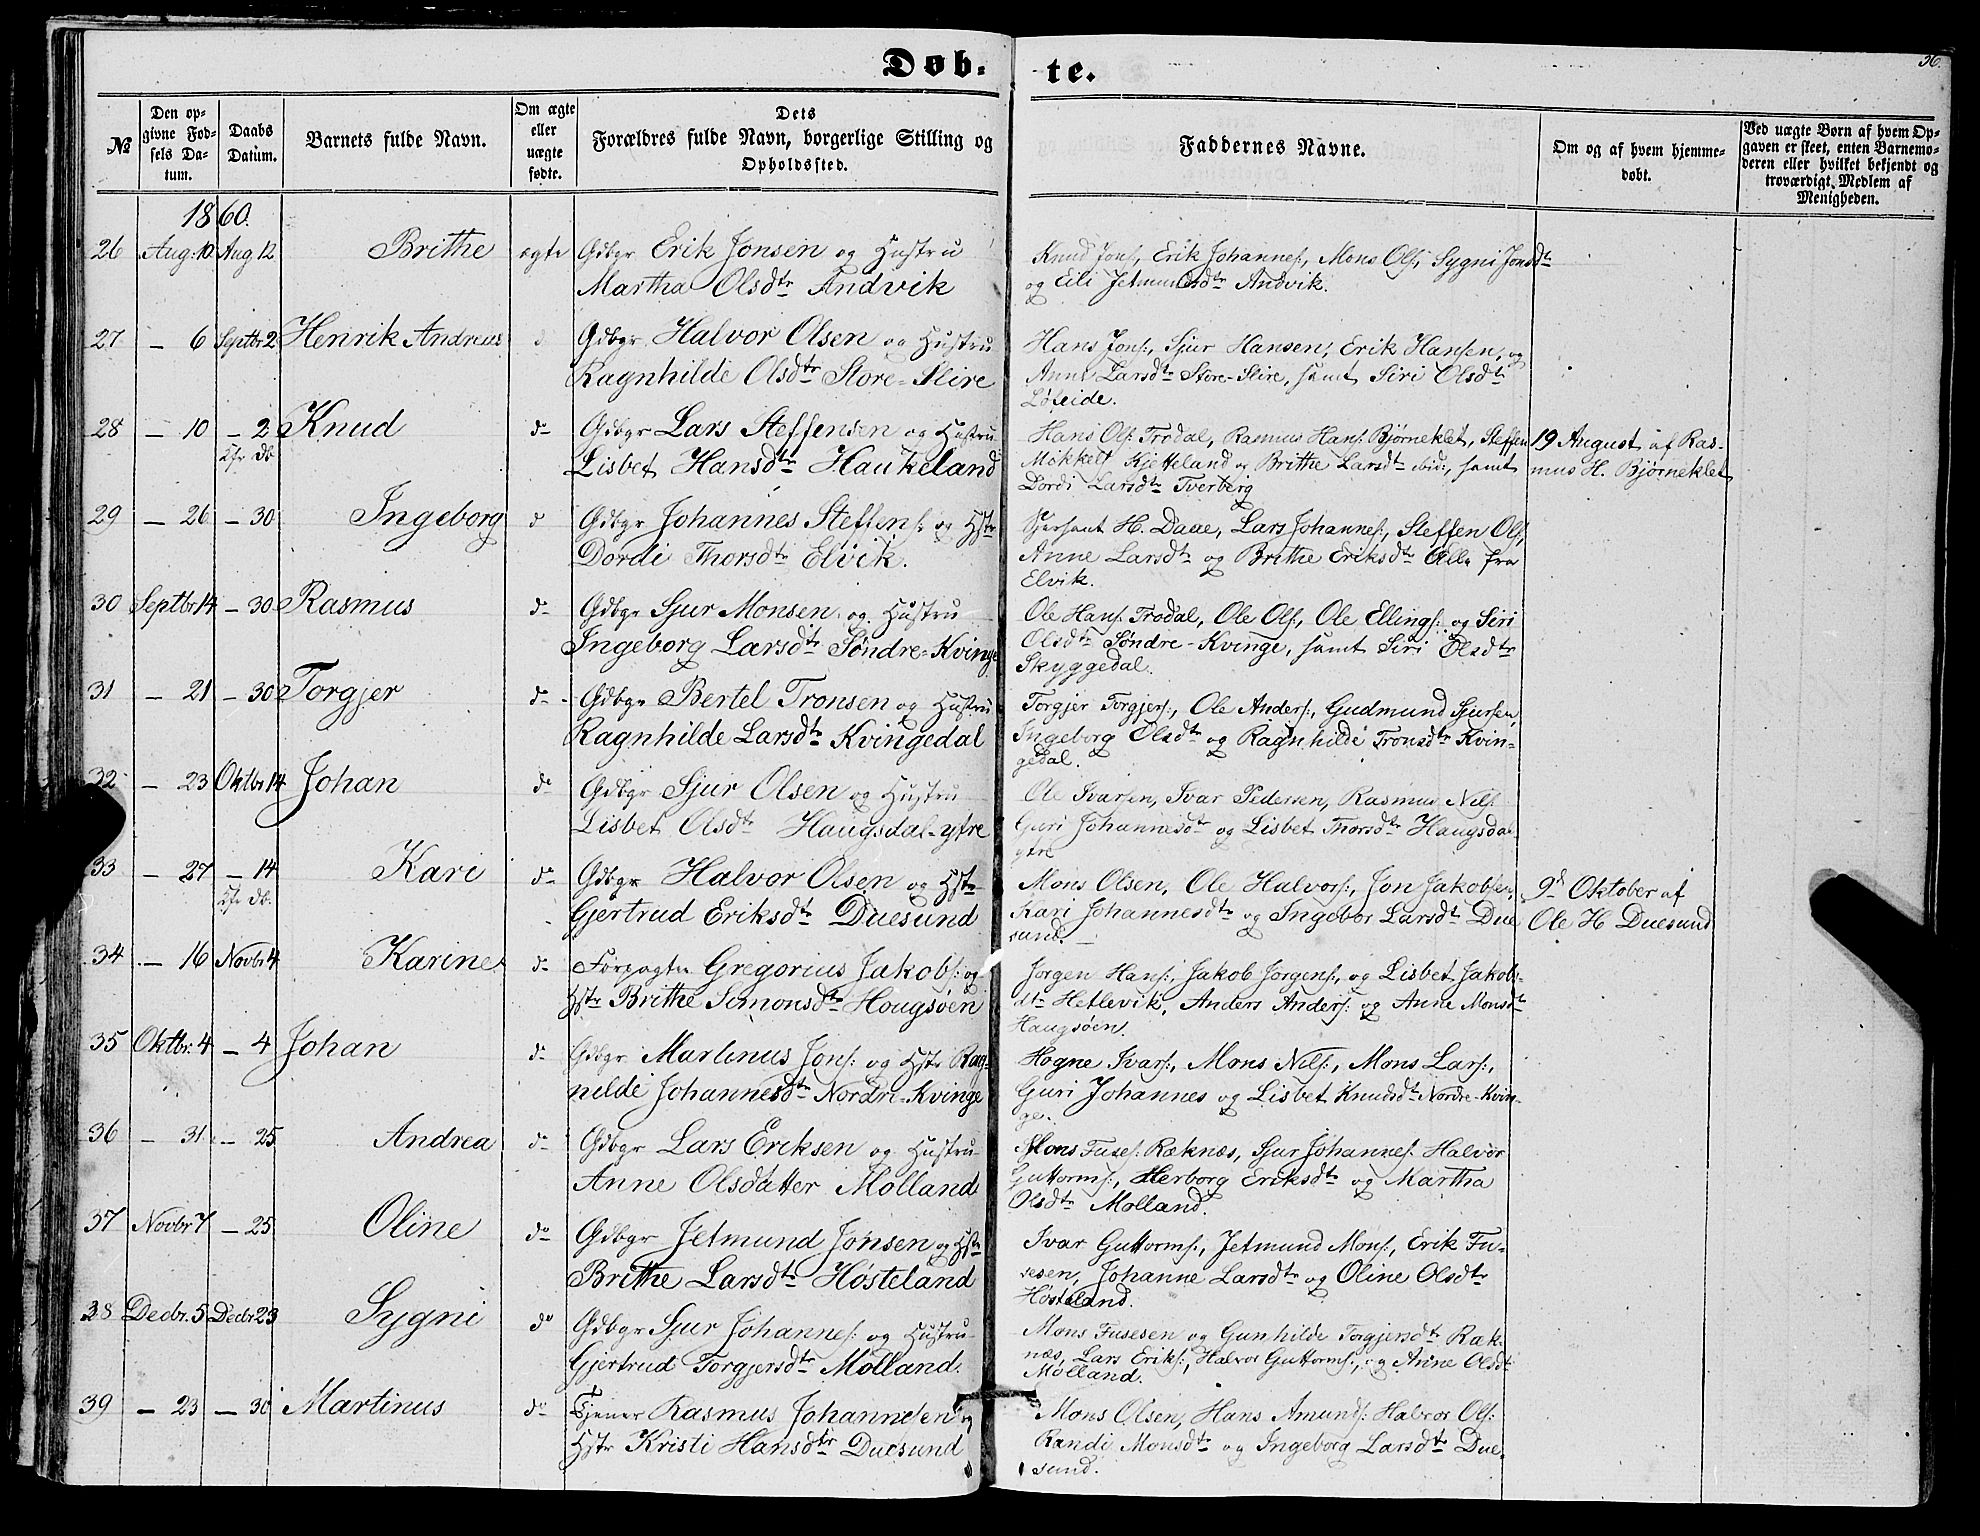 Døb- te.
36.
№
Den op-
givne Fød-
sels Da-
tum.
Daabs
Datum.
Barnets fulde Navn.
Om ægte
eller
uægte
fødte.
Dets
Forældres fulde Navn, borgerlige Stilling og
Opholdssted.
Faddernes Navne.
Om og af hvem hjemme-
døbt.
Ved uægte Børn af hvem Op-
gaven er skeet, enten Barnemo-
deren eller hvilket bekjendt og
troværdigt Medlem af
Menigheden.
1860.
26 Aug: 10 Aug 12 Brithe ægte Gdbgr Erik Jonsen og Hustru
Martha Olsdtr Andvik
Knud Jons:, Erik Johannes:, Mons Ols:, Sygni Jonsdtr
og Eili Jetmundsdtr Andvik.
27 — 6 Septbr 2 Henrik Andreas d Gdbgr Halvor Olsen og Hustru
Ragnhilde Olsdtr Store-Slire
Hans Jons:, Sjur Hansen, Erik Hansen, og
Anna Larsdtr Store-Slire, samt Siri Olsdtr
Løseide.
28 — 10 — 2 Knud do Gdbgr Lars Steffensen og Hustru
Lisbet Hansdtr Haukeland
Hans Ols: Trodal, Rasmus Hans: Bjørneklet, Steffen
Mikkels Kjetteland og Brithe Larsdtr ibid:, samt
Dordi Larsdtr Tverberg
19 August af Ras-
mus H. Bjørneklet
29 — 26 — 30 Ingeborg d Gdbgr Johannes Steffens: og Hstr
Dordi Thorsdtr Elvik.
Sersant H. Daae, Lars Johannes:, Steffen Ols:,
Anne Larsdtr og Brithe Eriksdtr Alle fra
Elvik.
30 Septbr 14 — 30 Rasmus do Gdbgr Sjur Monsen og Hustru
Ingeborg Larsdtr Søndre-Kvinge
Ole Hans: Trodal, Ole Ols:, Ole Ellings: og Siri
Olsdtr Søndre-Kvinge, samt Siri Olsdtr
Skyggedal.
31 — 21 — 30 Torgjer do Gdbgr Bertel Tronsen og Hustru
Ragnhilde Larsdtr Kvingedal
Torgjer Torgjers:, Ole Anders:, Gudmund Sjursen,
Ingeborg Olsdtr og Ragnhilde Tronsdtr Kvin-
gedal.
32 — 23 Oktbr 14 Johan do Gdbgr Sjur Olsen og Hustru
Lisbet Olsdtr Haugsdal-ytre
Ole Ivarsen, Ivar Pedersen, Rasmus Nils:
Guri Johannesdtr og Lisbet Thorsdtr Haugsdal
ytre
33 — 27 — 14 Kari do Gdbgr Halvor Olsen og Hstr
Gjertrud Eriksdtr Duesund
Mons Olsen, Ole Halvors:, Jon Jakobsen,
Kari Johannesdtr og Ingebor Larsdtr Due
sund.
9d Oktober af
Ole H Duesund
34 — 16 Novbr 4 Karine do Forpagter Gregorius Jakobs: og
Hstr Brithe Simonsdtr Hougsøen
Jørgen Hans:, Jakob Jørgens:, og Lisbet Jakobs-
dtr Hetlevik, Anders Anders: og Anne Monsdtr
Haugsøen.
35 Oktbr: 4 — 4 Johan do Gdbgr Martinus Jons: og Hstr Rag-
nilde Johannesdtr Nordre-Kvinge
Hogne Ivars:, Mons Nils:, Mons Lars:,
Guri Johannes og Lisbet Knudsdtr Nordre-Kvin-
ge.
36 — 31 — 25 Andrea do Gdbgr Lars Eriksen og Hustru
Anne Olsdatter Mølland
Mons Fuses: Ræknæs, Sjur Johannes: Halvor
Guttorms:, Herborg Eriksdtr og Martha
Olsdtr Mølland.
37 Novbr 7 — 25 Oline do Gdbgr Jetmund Jonsen og Hstr
Brithe Larsdtr Høsteland
Ivar Guttorms:, Jetmund Mons:, Erik Fu-
sesen, Johanne Larsdtr og Oline Olsdtr
Høsteland.
38 Decbr. 5 Decbr 23 Sygni do Gdbgr Sjur Johannes: og Hustru
Gjertrud Torgjersdtr Mølland.
Mons Fusesen og Gunhilde Torgjersdtr Ræk-
næs, Lars Eriks:, Halvor Guttorms:, og Anne Olsdtr
Mølland.
39 — 23 — 30 Martinus do Tjener Rasmus Johannesen og
Hstr Kristi Hansdtr Duesund
Mons Olsen, Hans Amunds: Halvor Ols:
Randi Monsdtr og Ingeborg Larsdtr Due-
sund.